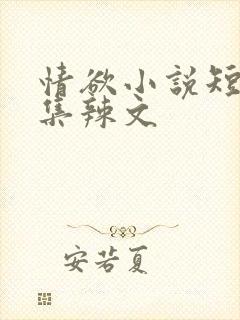 情欲小説短
集辣文
安若夏